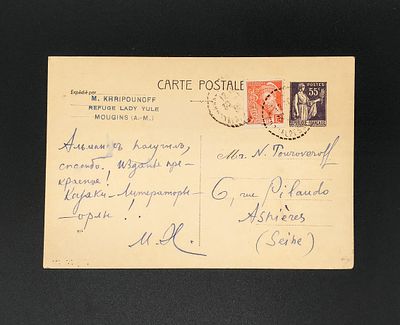 CARTE POSTALE
Expédié par
M. KHRIPOUNOFF
REFUGE LADY YULE
MOUGINS (A.-M.)
POSTES
55c
Альманахъ получилъ,
спасибо. Издание пре-
красное! Казаки-Литераторы-
орлы!
М. Х.
Mr. N. Touroveroff
6, rue Pilaudo
Asnières
(Seine)